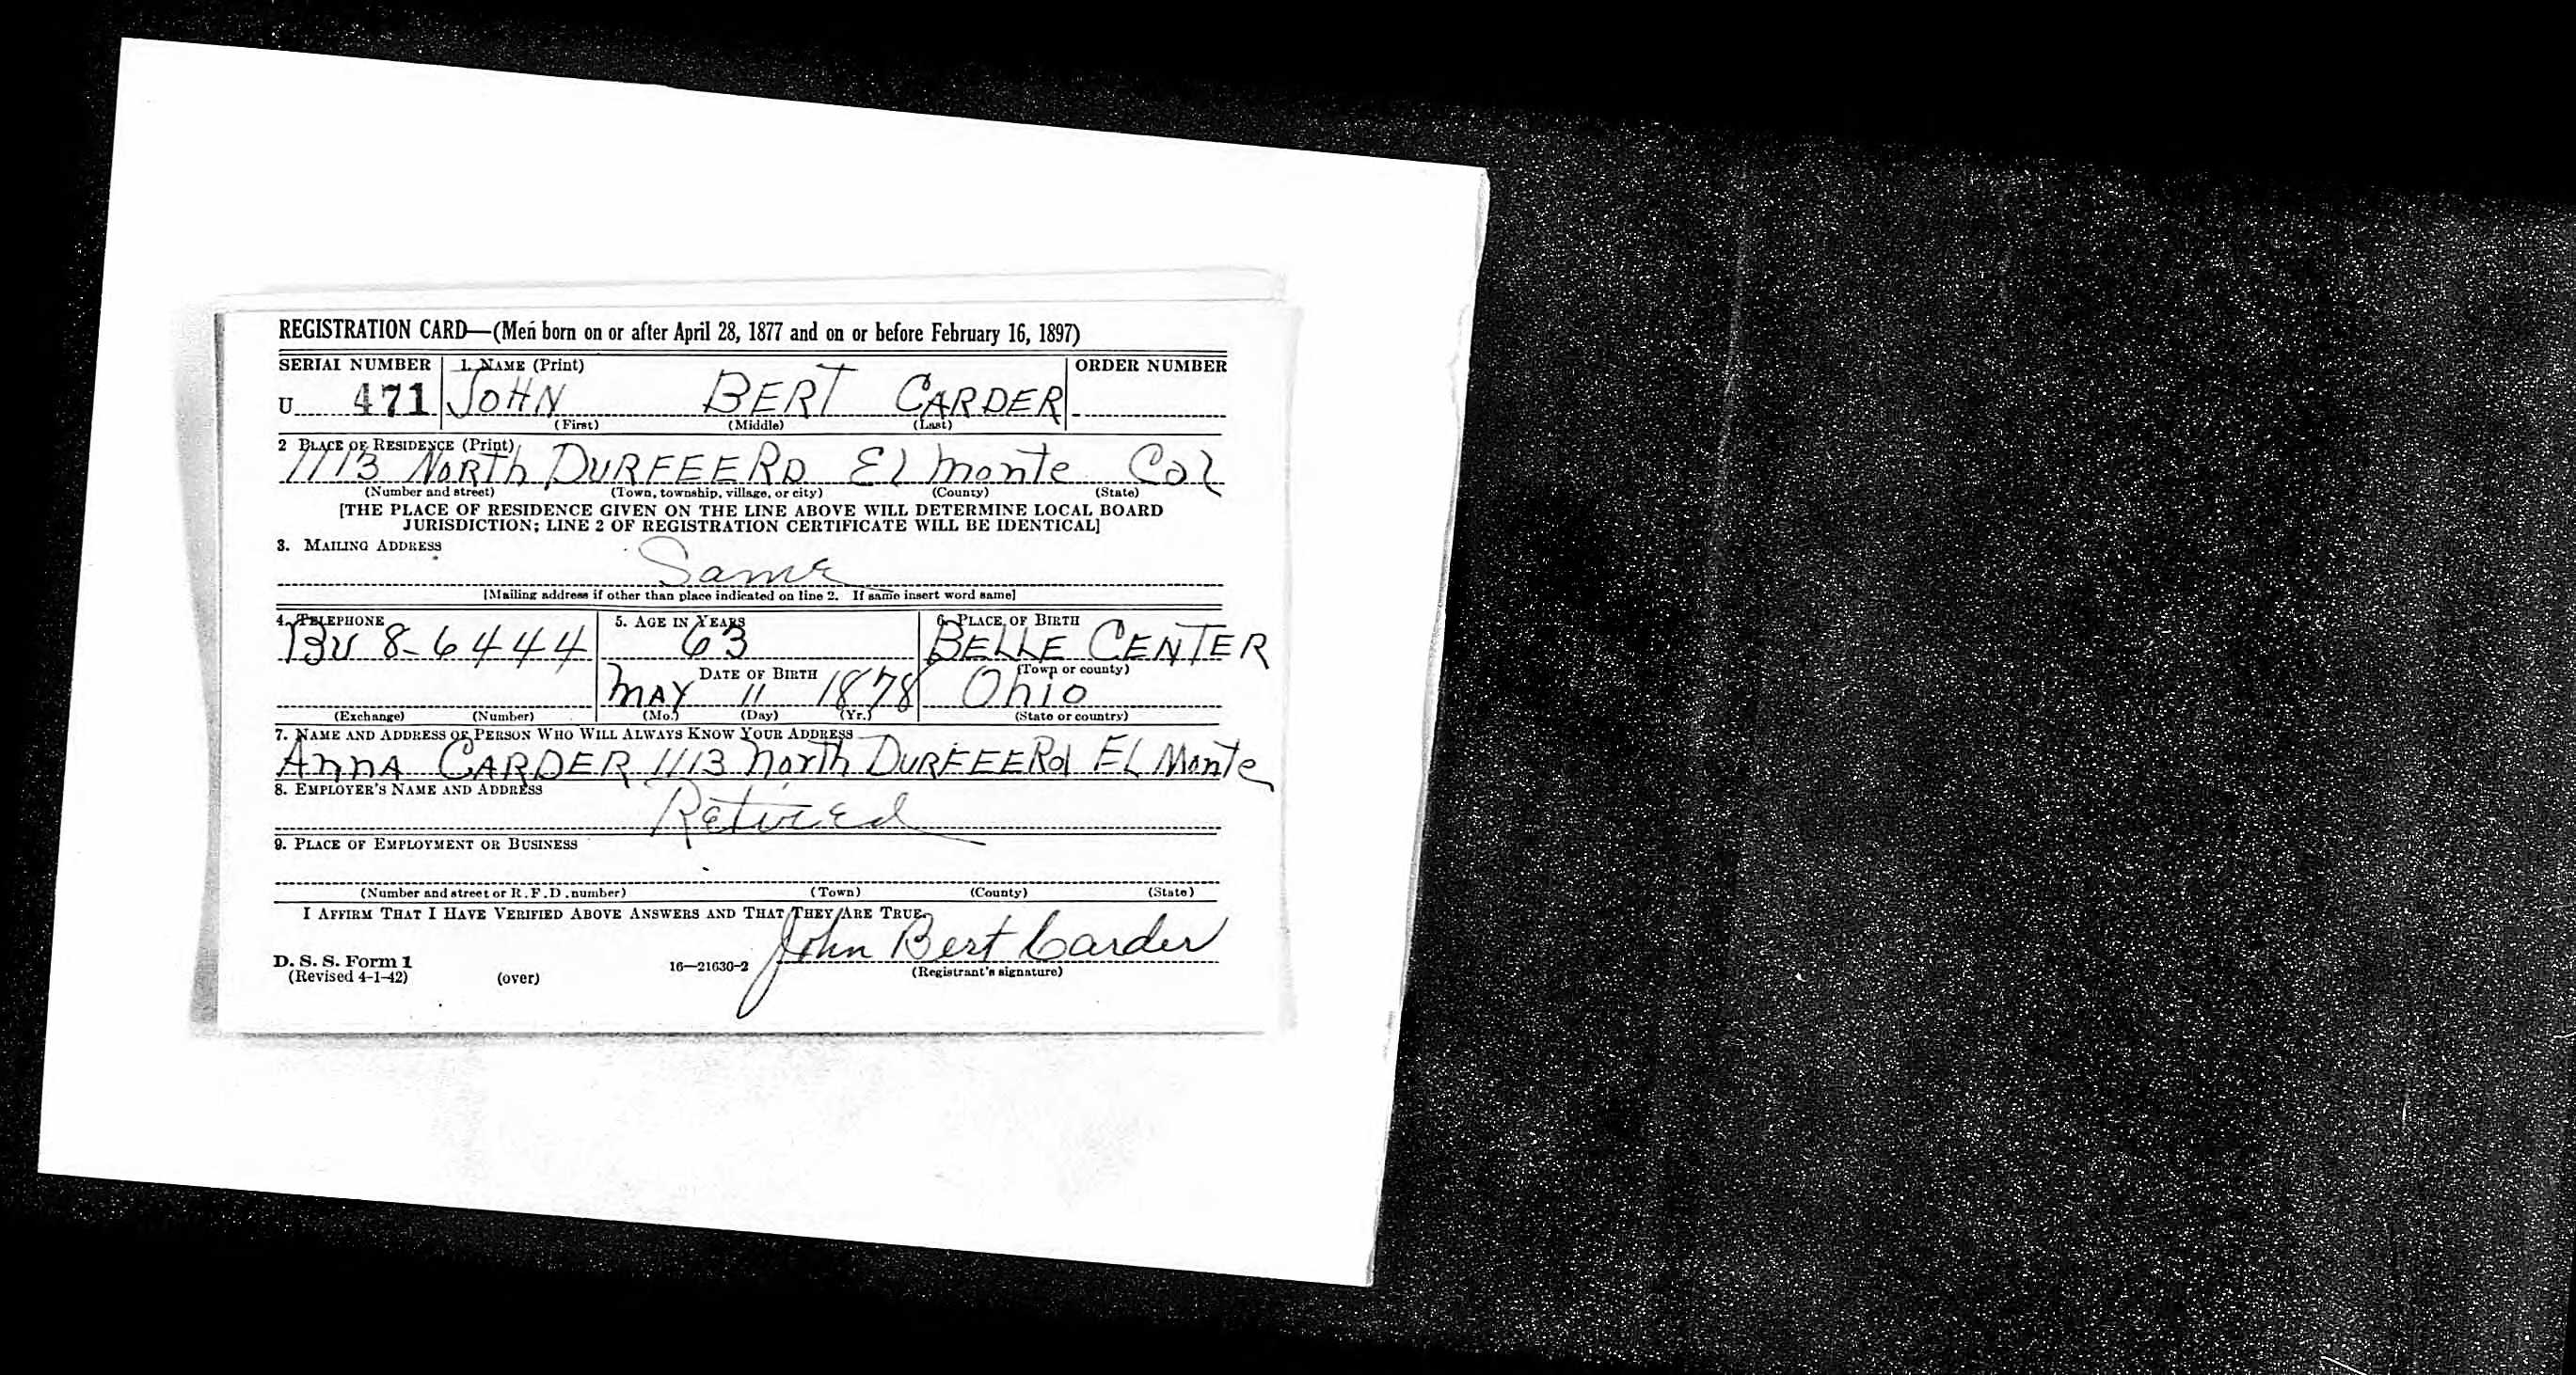 REGISTRATION CARD—(Men born on or after April 28, 1877 and on or before February 16, 1897)
SERIAL NUMBER 1. NAME (Print) ORDER NUMBER
U 471 JOHN BERT CARDER
(First) (Middle) (Last)
2 PLACE OF RESIDENCE (Print)
1113 NORTh DURFEE RD El monte Cal
(Number and street) (Town, township, village, or city) (County) (State)
[THE PLACE OF RESIDENCE GIVEN ON THE LINE ABOVE WILL DETERMINE LOCAL BOARD
JURISDICTION; LINE 2 OF REGISTRATION CERTIFICATE WILL BE IDENTICAL]
3. MAILING ADDRESS
Same
[Mailing address if other than place indicated on line 2. If same insert word same]
4. TELEPHONE 5. AGE IN YEARS 6. PLACE OF BIRTH
BU 8-6444 63 BELLE CENTER
DATE OF BIRTH (Town or county)
MAY 11 1878 Ohio
(Exchange) (Number) (Mo.) (Day) (Yr.) (State or country)
7. NAME AND ADDRESS OF PERSON WHO WILL ALWAYS KNOW YOUR ADDRESS
AnnA CARDER 1113 North DURFEE Rd EL Monte
8. EMPLOYER'S NAME AND ADDRESS
Retired
9. PLACE OF EMPLOYMENT OR BUSINESS
(Number and street or R. F. D. number) (Town) (County) (State)
I AFFIRM THAT I HAVE VERIFIED ABOVE ANSWERS AND THAT THEY ARE TRUE.
John Bert Carder
D. S. S. Form 1 16—21630-2 (Registrant's signature)
(Revised 4-1-42) (over)